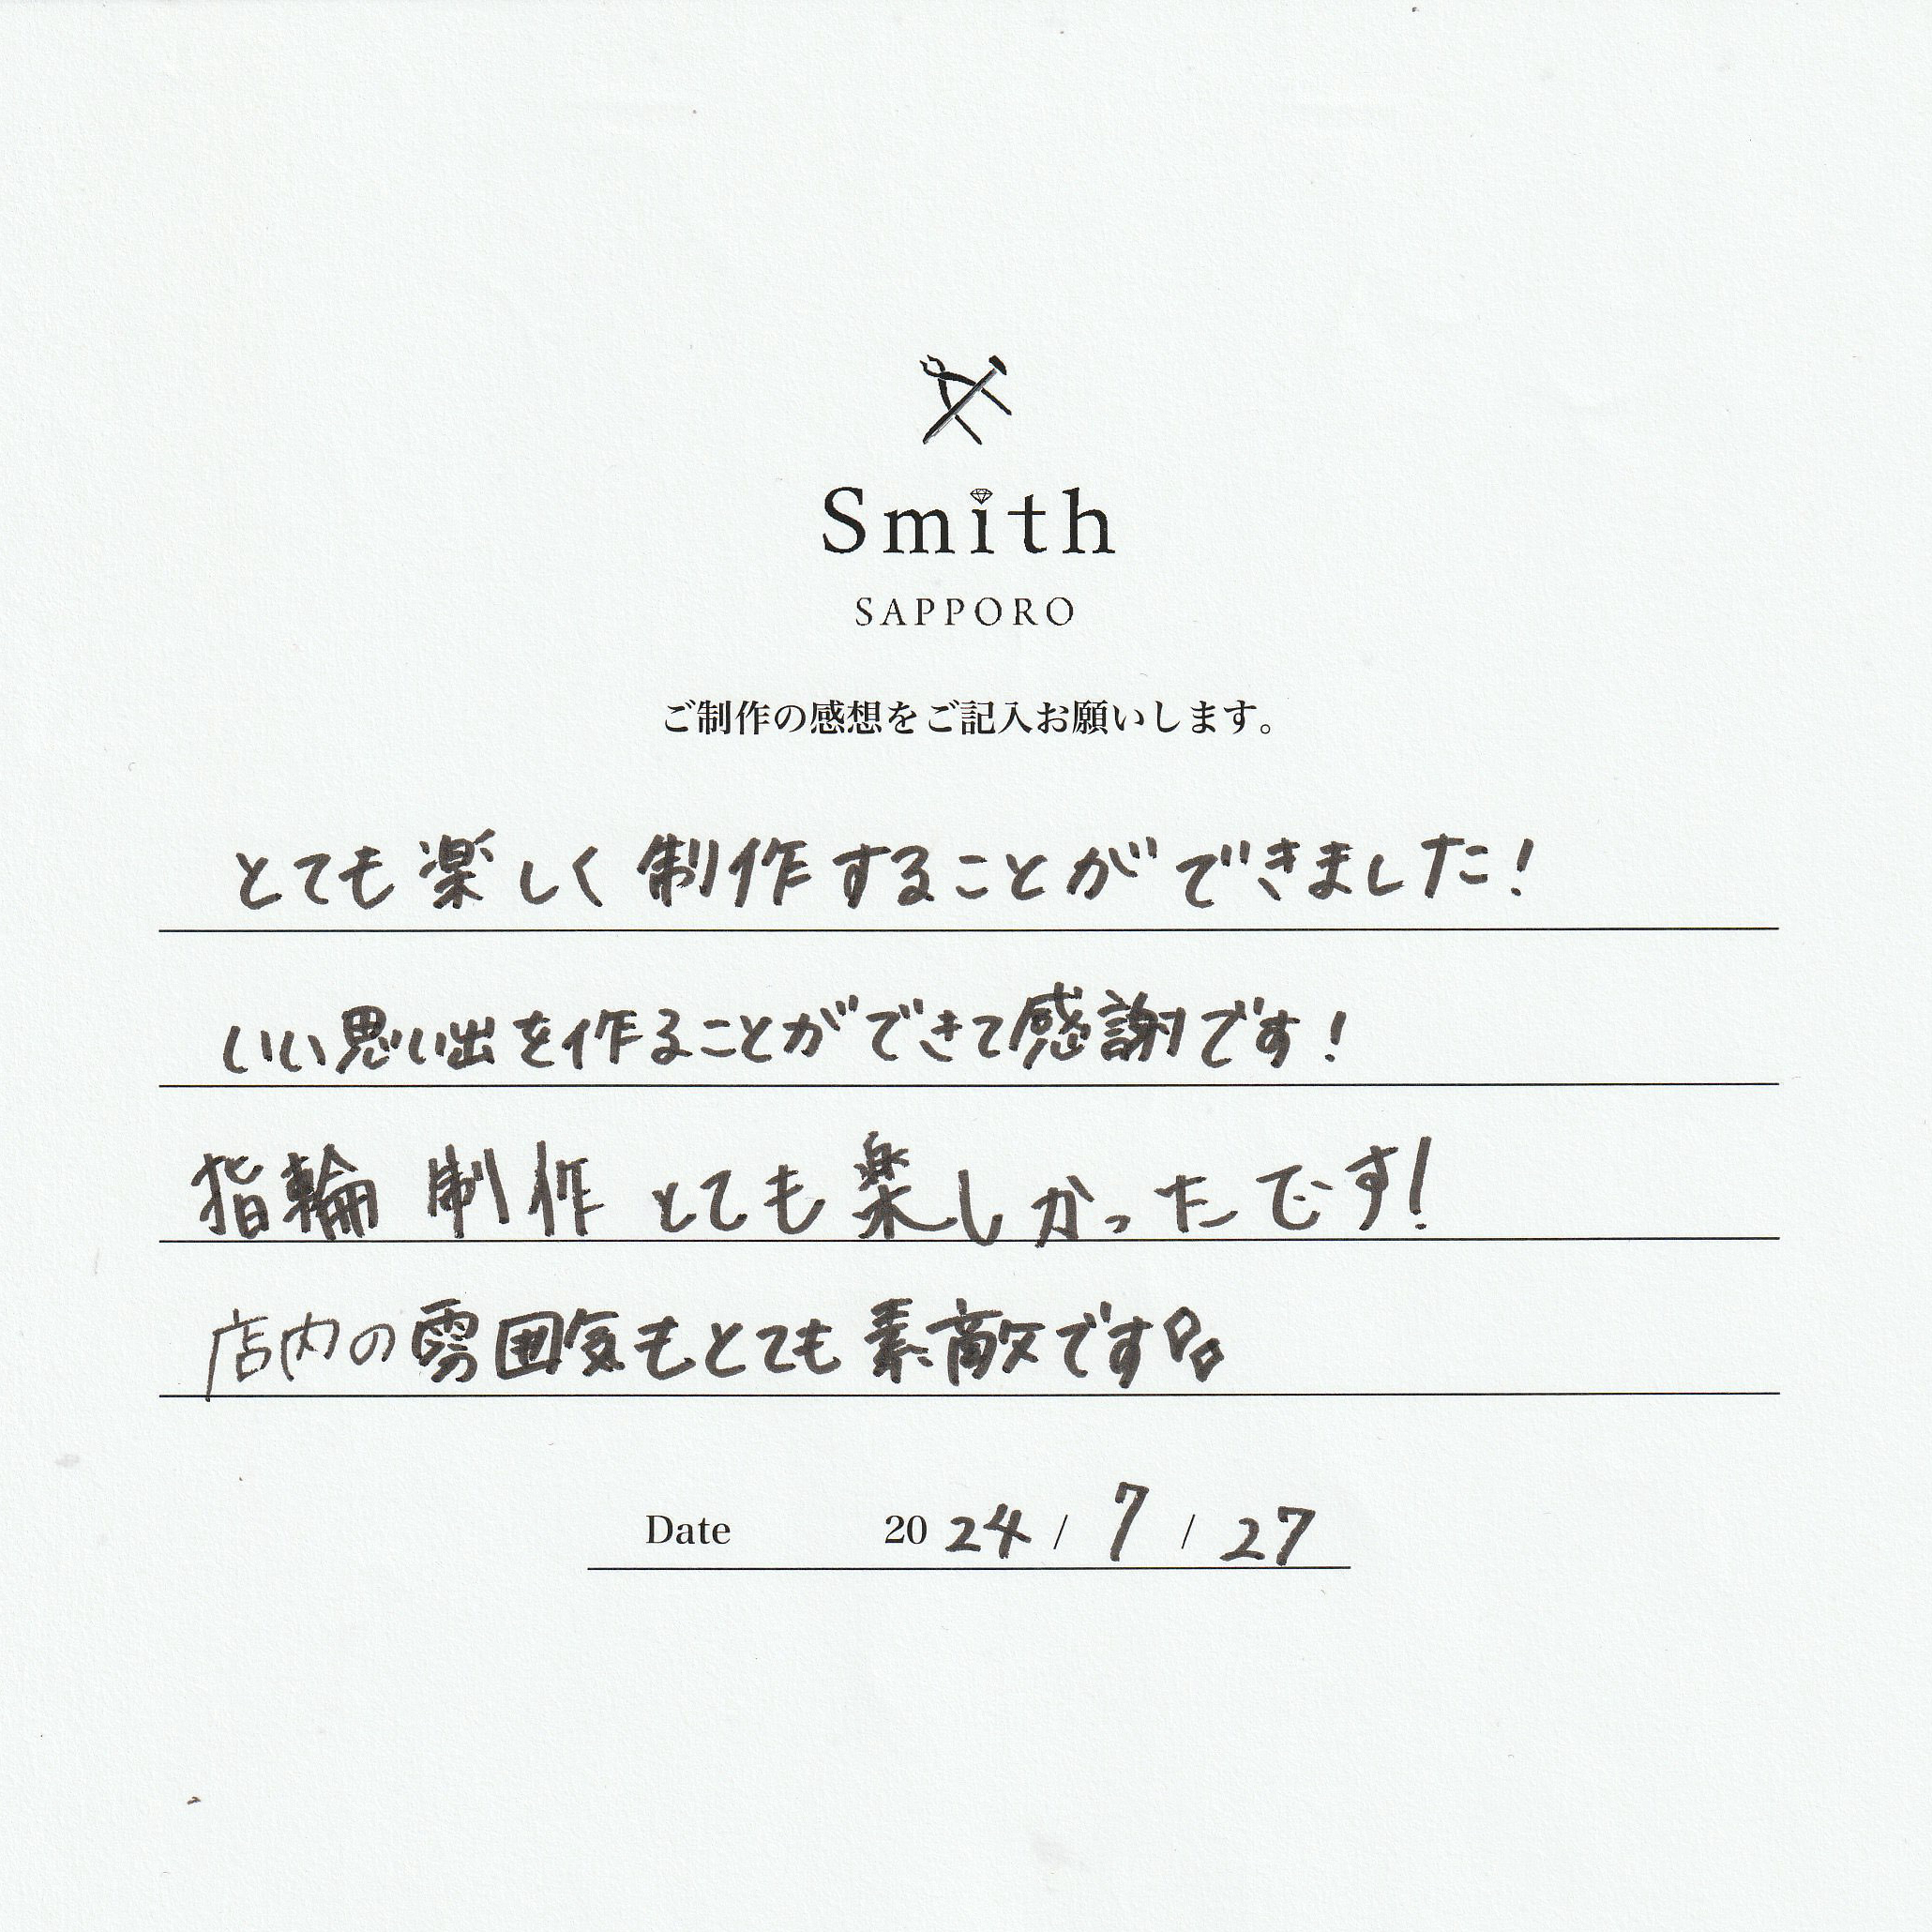 Smith
SAPPORO
ご制作の感想をご記入お願いします。
とても楽しく制作することができました!
いい思い出を作ることができて感謝です!
指輪制作とても楽しかったです!
店内の雰囲気もとても素敵です
Date 2024 / 7 / 27